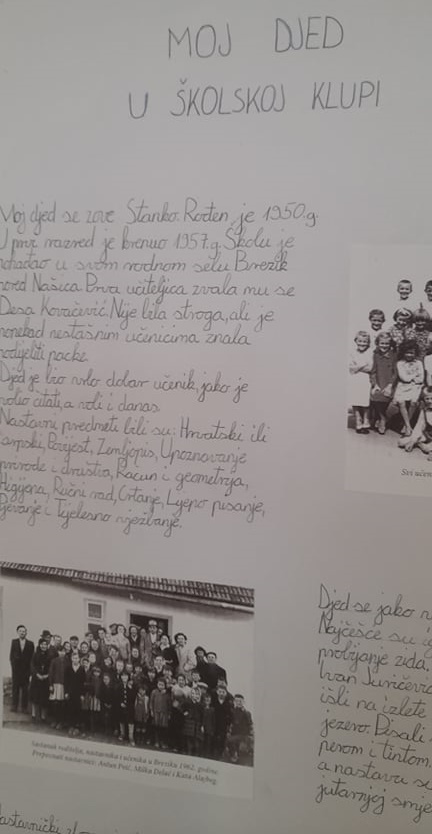 MOJ DJED
U ŠKOLSKOJ KLUPI
Moj djed se zove Stanko. Rođen je 1950.g.
U prvi razred je krenuo 1957.g. Školu je
pohađao u svom rodnom selu Brezik
pored Našica. Prva učiteljica zvala mu se
Desa Kovačević. Nije bila stroga, ali je
ponekad nestašnim učenicima znala
podijeliti packe.
Djed je bio vrlo dobar učenik, jako je
volio čitati, a voli i danas.
Nastavni predmeti bili su: Hrvatski ili
srpski, Povijest, Zemljopis, Upoznavanje
prirode i društva, Račun i geometrija,
Higijena, Ručni rad, Crtanje, Lijepo pisanje,
Pjevanje i Tjelesno vježbanje.
Svi učen
Sastanak roditelja, nastavnika i učenika u Breziku 1962. godine
Prepoznati nastavnici: Antun Potč, Milka Delač i Kata Alajbeg.
Djed se jako
Najčešće su
probijanje zida.
Ivan
išli na izlete
jezero. Pisali
perom i tintom.
a nastava se
jutarnjoj smje